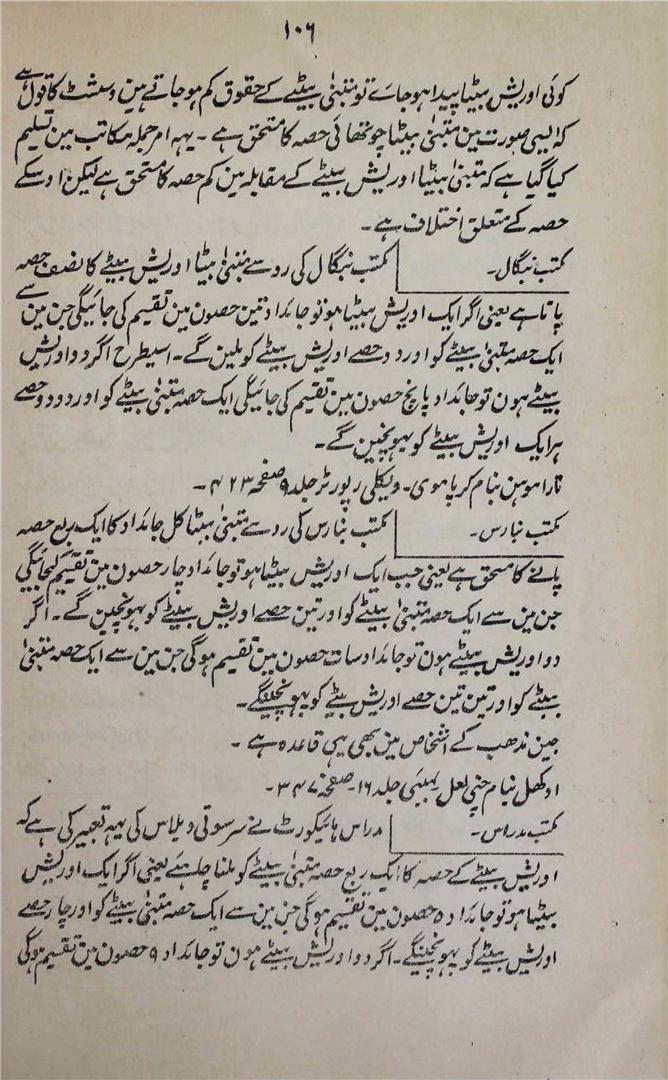 ۱۰۶
کوئی اوریش بیٹیا پیدا ہو جاے تو متبنیٰ بیٹے کے حقوق کم ہو جاتے ہین وسشٹ کا قول ہے
کہ ایسی صورت مین متبنیٰ بیٹیا چوتھائی حصہ کا مستحق ہے ۔ یہہ امر جملہ مکاتب مین تسلیم
کیا گیا ہے کہ متبنیٰ بیٹیا اوریش بیٹے کے مقابلہ مین کم حصہ کا مستحق ہے لیکن اوسکے
حصہ کے متعلق اختلاف ہے ۔
مکتب بنگال ۔ مکتب بنگال کی رو سے متبنیٰ بیٹا اوریش بیٹے کا نصف حصہ
پاتا ہے یعنی اگر ایک اوریش بیٹیا ہو تو جائداد تین حصون مین تقسیم کی جائیگی جن مین سے
ایک حصہ متبنیٰ بیٹے کو اور دو حصے اوریش بیٹے کو ملین گے ۔ اسیطرح اگر دو اوریش
بیٹے ہون تو جائداد پانچ حصون مین تقسیم کی جائیگی ایک حصہ متبنیٰ بیٹے کو اور دو دو حصے
ہر ایک اوریش بیٹے کو پہونچین گے ۔
تارا موہن بنام کرپا موی ۔ ویکلی رپورٹر جلد ۹ صفحہ ۴۲۳ ۔
مکتب بنارس ۔ مکتب بنارس کی رو سے متبنیٰ بیٹا کل جائداد کا ایک ربع حصہ
پانے کا مستحق ہے یعنی جب ایک اوریش بیٹیا ہو تو جائداد چار حصون مین تقسیم کیجائیگی
جن مین سے ایک حصہ متبنیٰ بیٹے کو اور تین حصے اوریش بیٹے کو پہونچین گے ۔ اگر
دو اوریش بیٹے ہون تو جائداد سات حصون مین تقسیم ہوگی جن مین سے ایک حصہ متبنیٰ
بیٹے کو اور تین تین حصے اوریش بیٹے کو پہونچینگے ۔
جین مذھب کے اشخاص مین بھی یہی قاعدہ ہے ۔
بنام چنی لعل بمبئی جلد ۱۶ ۔ صفحہ ۳۴۷ ۔
مکتب مدراس ۔ مدراس ہائیکورٹ نے سرسوتی ویلاس کی یہہ تعبیر کی ہے کہ
اوریش بیٹے کے حصہ کا ایک ربع حصہ متبنیٰ بیٹے کو ملنا چاہئے یعنی اگر ایک اوریش
بیٹیا ہو تو جائداد ۵ حصون مین تقسیم ہوگی جن مین سے ایک حصہ متبنیٰ بیٹے کو اور چار حصے
اوریش بیٹے کو پہونچینگے ۔ اگر دو اوریش بیٹے ہون تو جائداد ۹ حصون مین تقسیم ہوگی